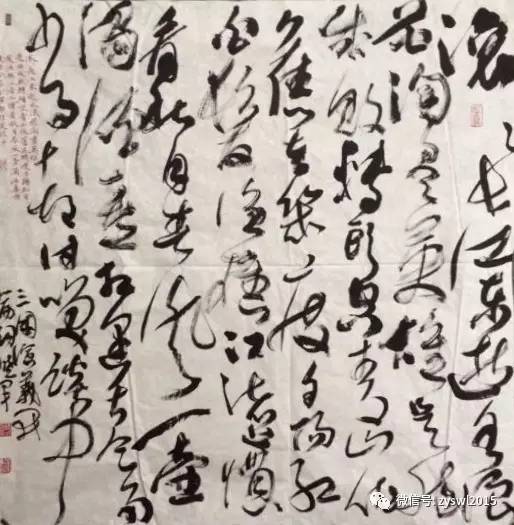 滚滚长江东逝水浪
花淘尽英雄是非
成败转头空青山依
舊在几度夕阳红
白发渔樵江渚上惯
看秋月春风一壶
浊酒喜相逢古今多
少事都付笑谈中
三国演义开
篇词
微信号: zyswl2015